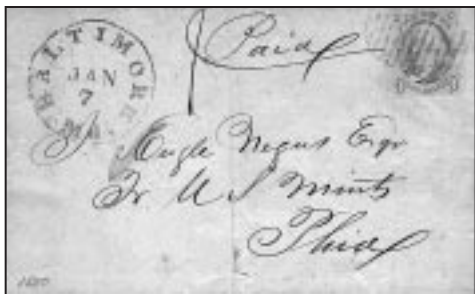 BALTIMORE Md.
JAN
7
Paid
Negus Esqr
Tr. U S Mint
Phila